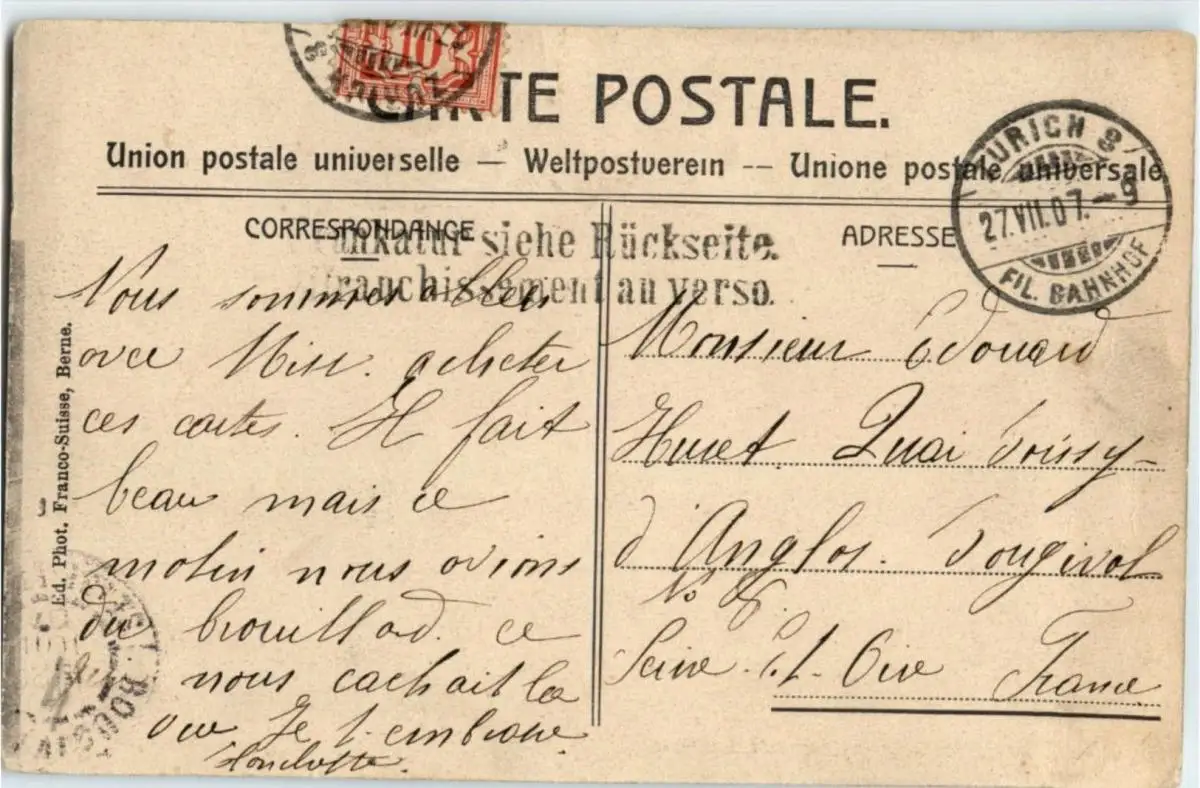 10
CARTE POSTALE.
Union postale universelle — Weltpostverein -- Unione postale universale
ZÜRICH 8
27.VII.07.—9
FIL. BAHNHOF
CORRESPONDANCE
ADRESSE
Frankatur siehe Rückseite.
Affranchissement au verso.
Nous sommes allées
avec Miss. acheter
ces cartes. Il fait
beau mais ce
matin nous avions
du brouillard. ce
nous cachait la
vue Je t. embrasse
Monsieur Edouard
Huret Quai
d'Anglas.
No 8.
Seine. et. Oise France
Ed. Phot. Franco-Suisse, Berne.